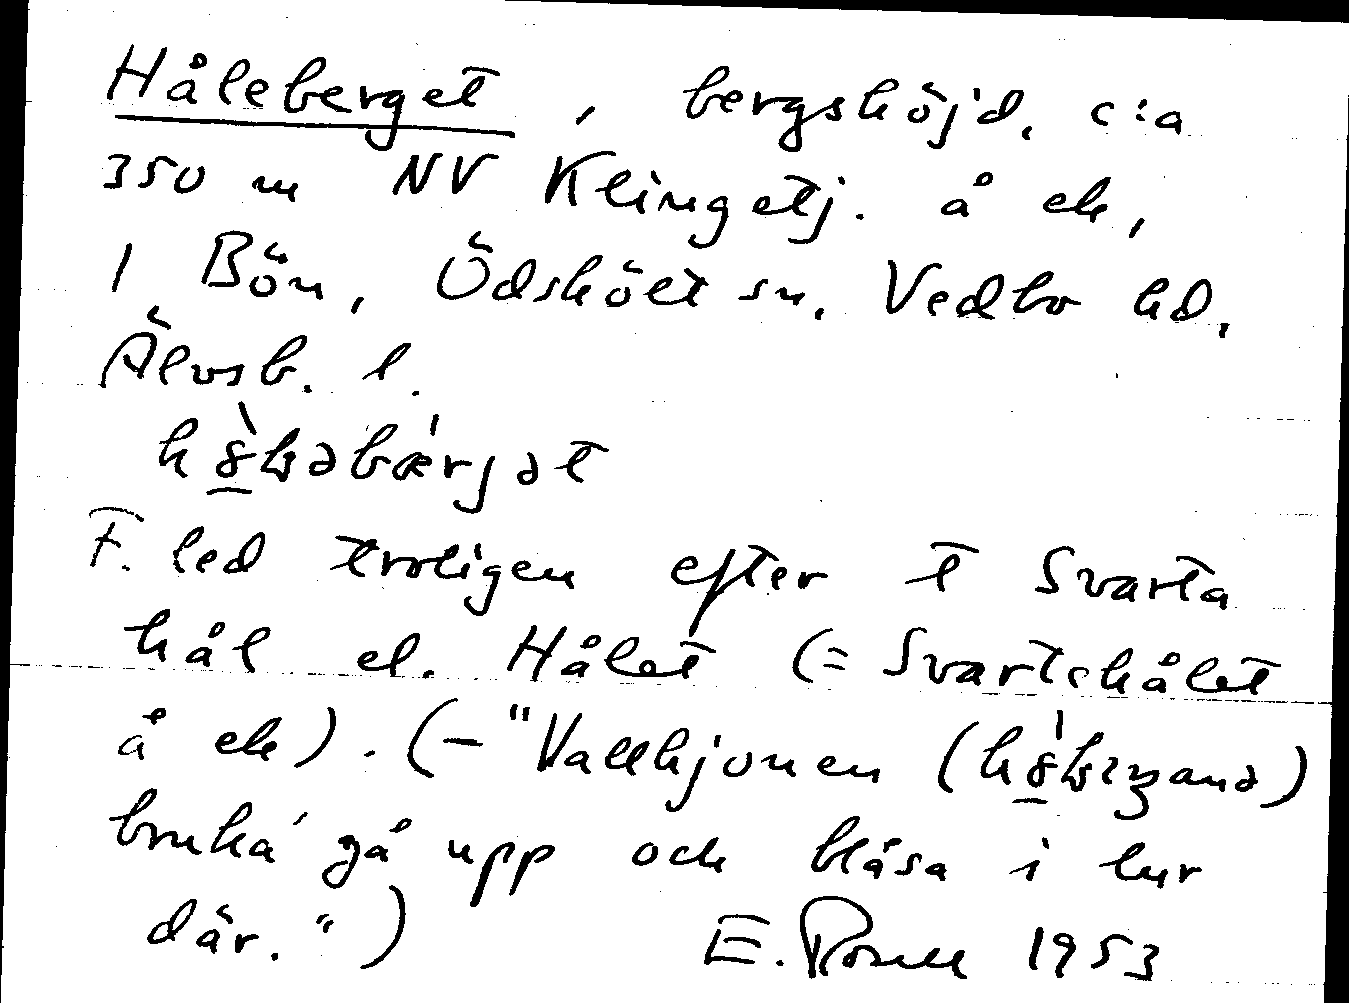 Håleberget, bergshöjd, c:a
350 m NV Klingetj. å ek,
1 Bön, Ödskölt sn, Vedbo hd,
Älvsb. l.
F. led troligen efter t Svarta
hål el. Hålet (= Svartehålet
å ek). (– "Vallhjonen
bruka' gå upp och blåsa i lur
där.")
E. Rosell 1953